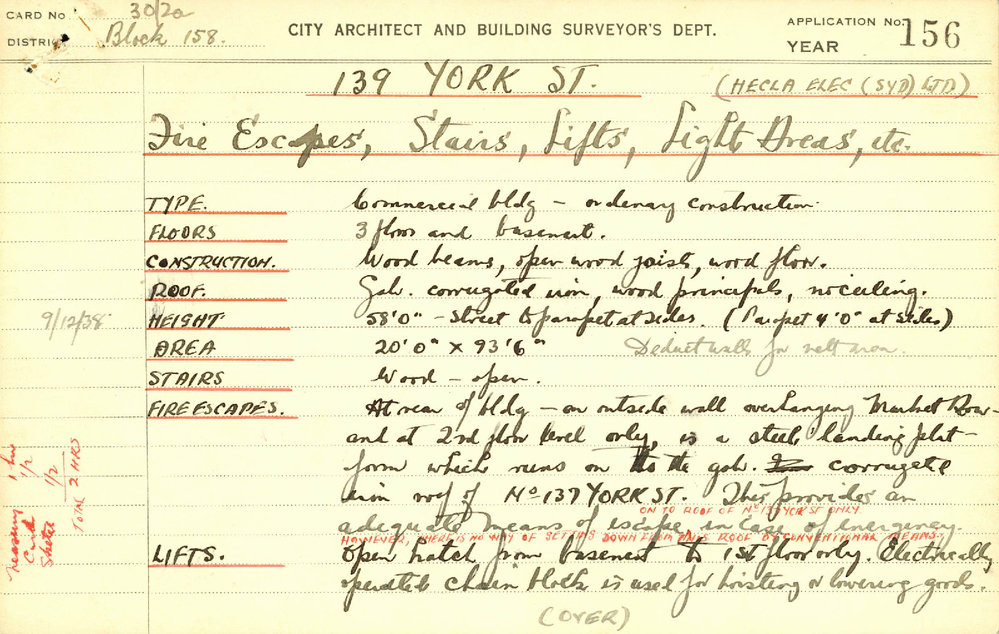 CARD No. 30/2a
DISTRICT Block 158.
CITY ARCHITECT AND BUILDING SURVEYOR'S DEPT.
APPLICATION No. 156
YEAR
139 YORK ST. (HECLA ELEC (SYD) LTD)
Fire Escapes, Stairs, Lifts, Light Areas, etc.
TYPE. Commercial bldg — ordenary construction.
FLOORS 3 floor and basement.
CONSTRUCTION. Wood beams, open wood joists, wood floor.
ROOF. Galv. corrugated iron, wood principals, no ceiling.
9/12/38 HEIGHT 58'0" - Street to parapet at sides. (Parapet 4'0" at sides)
AREA 20'0" x 93'6" Deduct walls for nett area.
STAIRS Wood — open.
FIRE ESCAPES. At rear of bldg — on outside wall overhanging Market Row
and at 2nd floor level only, is a steel landing plat-
form which runs on to the galv. corrugate
iron roof of No 137 YORK ST. This provides an
ON TO ROOF OF No 137 YORK ST ONLY.
adequate means of escape, in case of emergency.
HOWEVER, THERE IS NO WAY OF GETTING DOWN FROM THIS ROOF BY CONVENTIONAL MEANS.
LIFTS. Open hatch from basement to 1st floor only. Electrically
operated chain block is used for hoisting or lowering goods.
(OVER)
1 hr
Card 1/2
Sketch 1/2
TOTAL 2 HRS